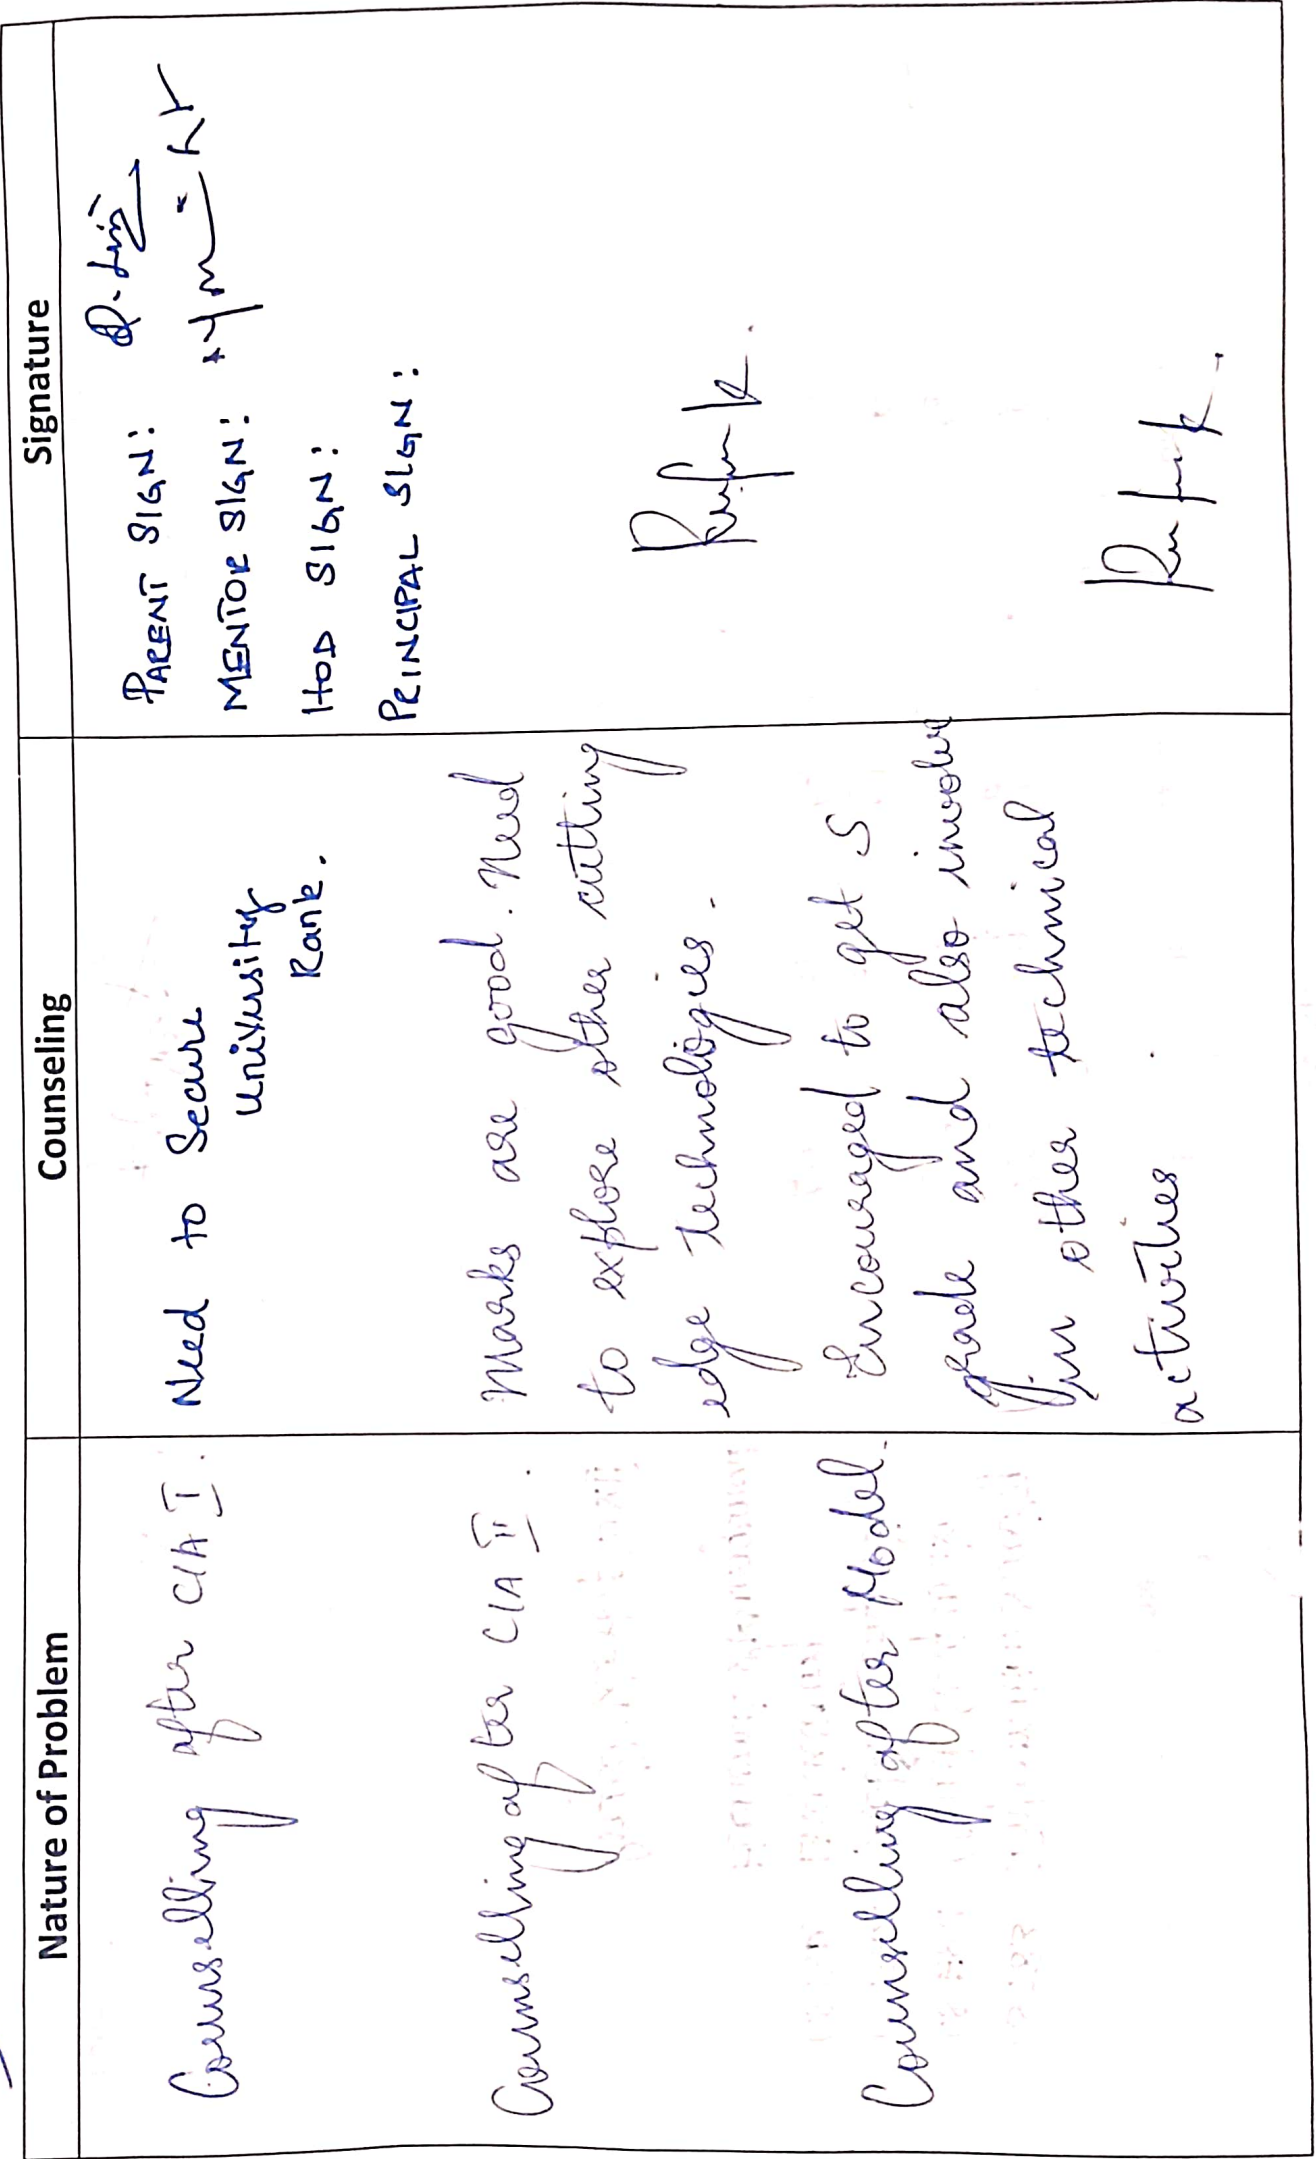 Nature of Problem
Counseling
Signature
Counselling after CIA I.
Need to Secure
University
Rank.
PARENT SIGN:
MENTOR SIGN:
HOD SIGN:
PRINCIPAL SIGN:
Counselling after CIA II.
Marks are good. Need
to explore other cutting
edge technologies.
Counselling after Model.
Encouraged to get S
grade and also involve
in other technical
activities